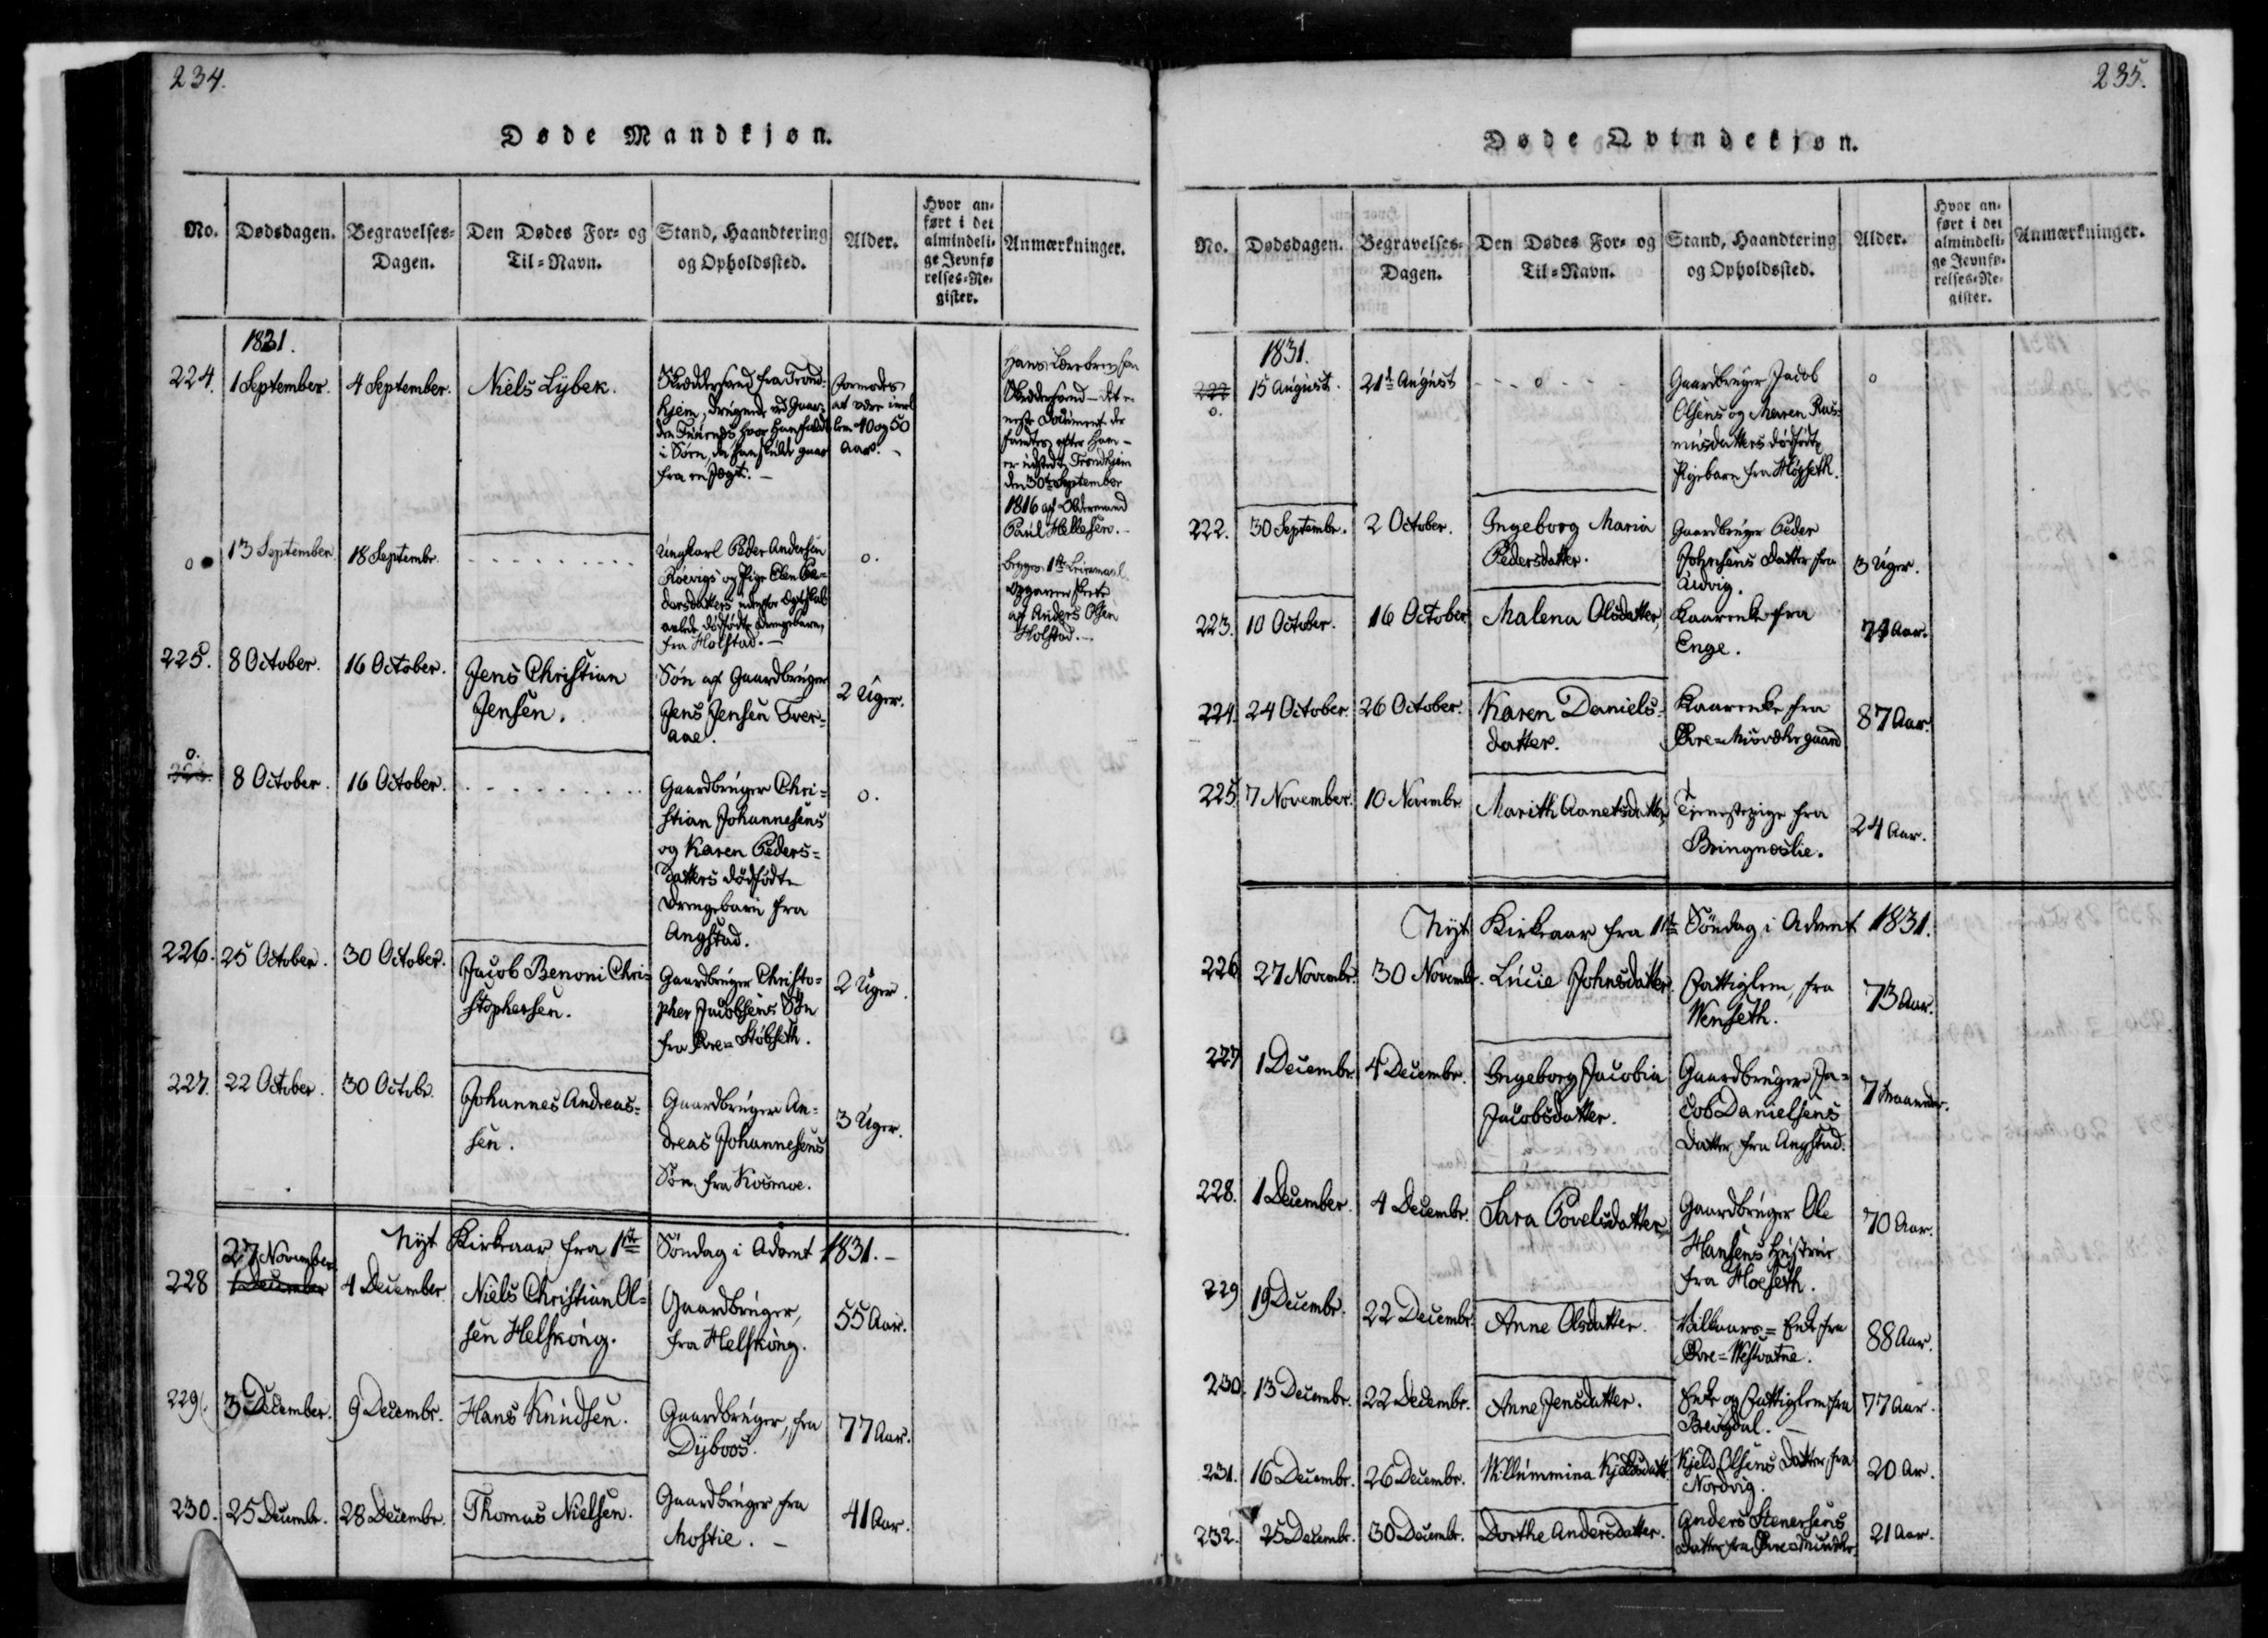 234.
Døde Mandkjøn.
No. Dødsdagen. Begravelses-Dagen. Den Dødes For- og Til-Navn. Stand, Haandtering og Opholdssted. Alder. Hvor anført i det almindelige Jevnførelses-Register. Anmærkninger.
1831.
224. 1 September. 4 September. Niels Lÿbek.
Skræddersvend fra Trond-
hjem,
i Søen,
fra en Jægt. –
formodes
at være imel
lem 40 og 50
Aar. –
Skræddersvend – det e-
neste Document der
fandtes efter ham –
er udstedt Trondhjem
den 30te September
1816 af Oldermand
Paul Hellesen. –
o 13 September 18 Septembr. . . . . . . . . .
Ungkarl Peder Andersen
Røevigs og Pige Elen Pe-
dersdatters udenfor Ægteskab
avlede dødfødte Drengebarn,
fra Holstad. –
o.
Begges 1ste Leiermaal.
Opgaven skeede
af Anders Olsen
Holstad. –
225. 8 October. 16 October. Jens Christian
Jensen.
Søn af Gaardbruger
Jens Jensen Tver-
aae.
2 Uger.
o. 8 October. 16 October. . . . . . . . . .
Gaardbruger Chri-
stian Johannesens
og Karen Peders-
datters dødfødte
Drengebarn fra
Angstad.
o.
226. 25 October. 30 October. Jacob Benoni Chri-
stophersen.
Gaardbruger Christo-
pher Jacobsens Søn
fra Øvre-Støbseth.
2 Uger.
227. 22 October. 30 Octobr. Johannes Andreas-
sen.
Gaardbruger An-
dreas Johannesens
Søn fra Kosmoe.
3 Uger.
Nÿt Kirkeaar fra 1ste Søndag i Advent 1831. –
27 November.
228 1 December 4 December. Niels Christian Ol-
sen Helskong.
Gaardbruger,
fra Helskong.
55 Aar.
229. 3 December. 9 Decembr. Hans Knudsen.
Gaardbruger, fra
Dÿboos.
77 Aar.
230. 25 Decembr. 28 Decembr. Thomas Nielsen.
Gaardbruger fra
Mostie. –
41 Aar.
235.
Døde Qvindekjøn.
No. Dødsdagen. Begravelses-Dagen. Den Dødes For- og Til-Navn. Stand, Haandtering og Opholdssted. Alder. Hvor anført i det almindelige Jevnførelses-Register. Anmærkninger.
1831.
222
o. 15 August. 21de August - - - o - - -
Gaardbruger Jacob
Olsens og Maren Ras-
musdatters dødfødte
Pigebarn fra Høgseth.
o
222. 30 Septembr. 2 October. Ingeborg Maria
Pedersdatter.
Gaardbruger Peder
Johnsens Datter fra
Audvig.
3 Uger.
223. 10 October. 16 October. Malena Olsdatter,
Kaarenke fra
Enge.
74 Aar.
224. 24 October. 26 October. Karen Daniels-
datter.
Kaarenke fra
87 Aar.
225 7 November. 10 Novembr. Marith Aanetsdatter,
Tjenestepige fra
Bringneslie.
24 Aar.
Nÿt Kirkeaar fra 1ste Søndag i Advent 1831.
226 27 Novembr. 30 Novembr. Lucie Johnsdatter.
Fattiglem, fra
Wenseth.
73 Aar.
227 1 Decembr. 4 Decembr. Ingeborg Jacobia
Jacobsdatter.
Gaardbruger Ja-
cob Danielsens
Datter fra Angstad.
7 Maaneder.
228. 1 December. 4 Decembr. Sara Povelsdatter,
Gaardbruger Ole
Hansens Hustrue
fra Hoeseth.
70 Aar.
229 19 Decembr. 22 Decembr. Anne Olsdatter.
Vilkaars-Enke fra
Øvre-Westvatne.
88 Aar.
230. 13 Decembr. 22 Decembr. Anne Jensdatter.
Enke og Fattiglem fra
77 Aar.
231. 16 Decembr. 26 Decembr. Willummina Kjeldsdatt.
Kjeld Olsens Datter fra
Nordvig.
20 Ar.
232. 25 Decembr. 30 Decembr. Dorthe Andersdatter.
Anders Stenersens
Datter fra
21 Aar.